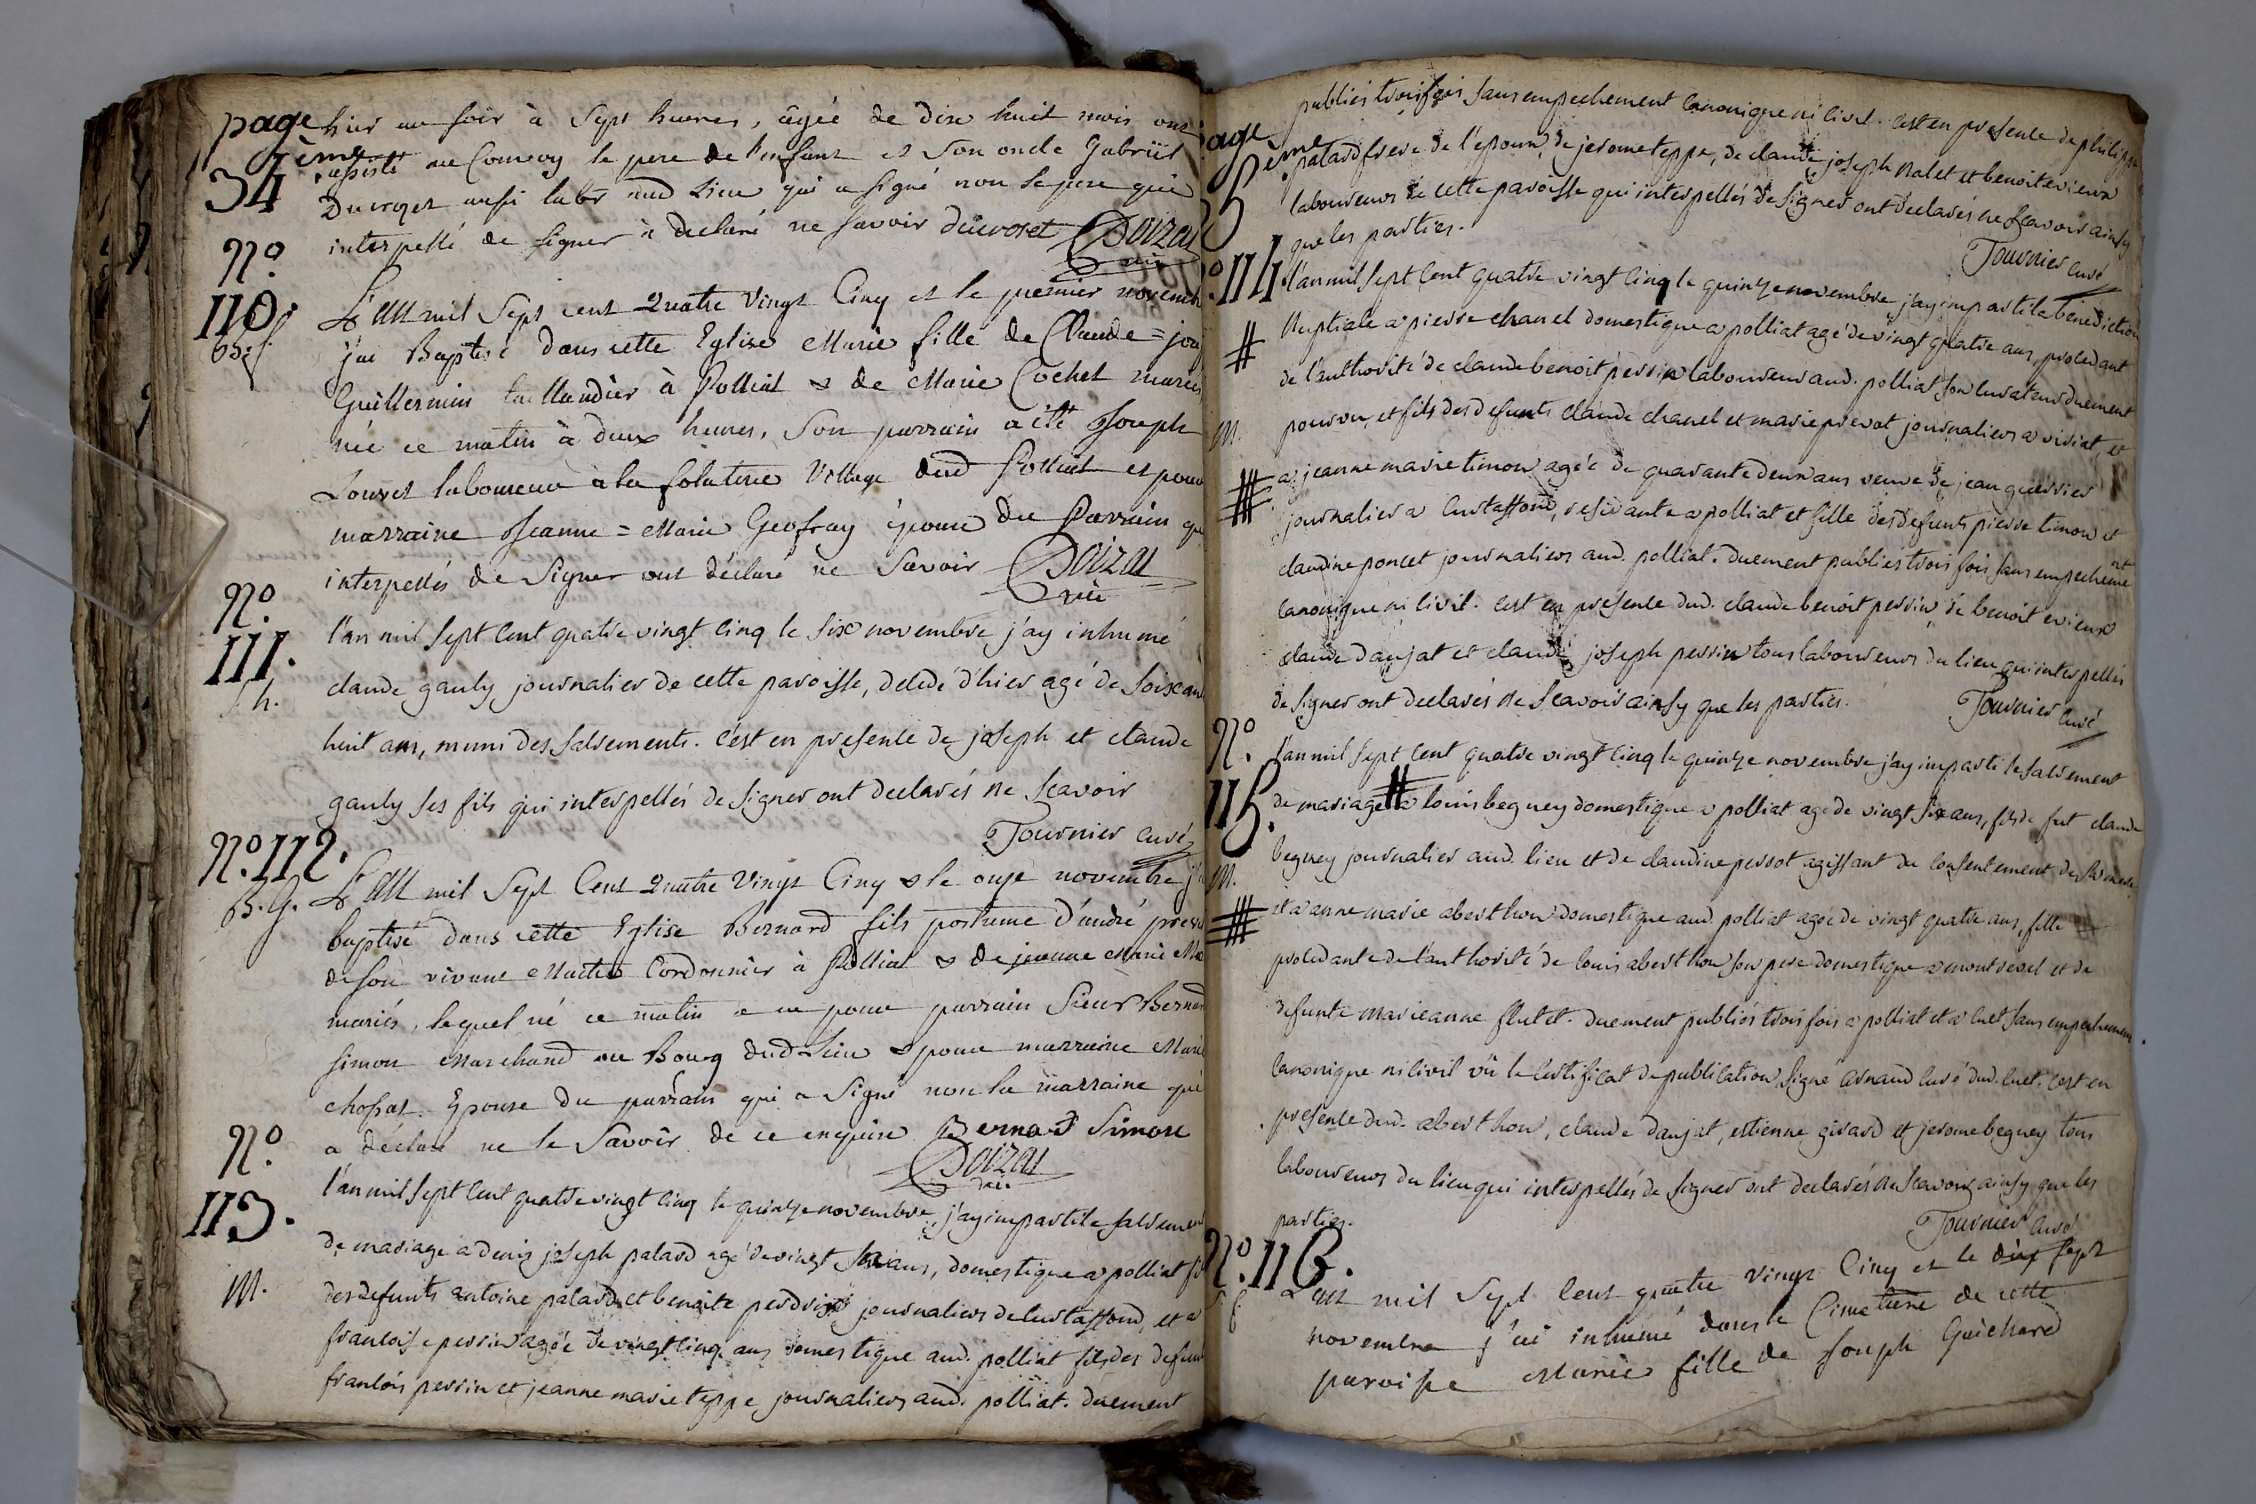 page 34ème
hier au soir à Sept heures, âgée de dix huit mois ont
assisté au Convoy le pere de l'enfant et son oncle Gabriël
Ducroset aussi labr aud Lieu qui a signé non le pere qui
interpellé de signer à declaré ne savoir ducroset Doizat
vic
No 110.
B: f.
L'an mil Sept cent Quatre Vingt Cinq et le premier novemb
j'ai Baptisé dans cette Eglise Marie fille de Claude = jos
Guillermin taillandier à Polliat & de Marie Cochet mariés
née ce matin à deux heures, Son parrain a été Joseph
Louvet laboureur à la folatiere Village dud Polliat et pour
marraine Jeanne = Marie Geofray épouse du Parrain qu
interpellés de Signer ont déclaré ne Savoir Doizat
vic
No 111.
S. h.
l'an mil sept cent quatre vingt cinq le six novembre j'ay inhumé
claude gauly journalier de cette paroisse, decedé d'hier agé de soixan
huit ans, muni des sacrements. c'est en presence de joseph et claude
gauly ses fils qui interpellés de signer ont declarés ne scavoir
Tournier curé
No 112.
B. G.
L'an mil Sept Cent Quatre Vingt Cinq & le onze novembre j'
baptisé dans cette Eglise Bernard fils postume d'andré
de son vivant Maitre Cordonnier à Polliat & de jeanne Marie
mariés, lequel né ce matin a eu pour parrain Sieur Bernard
Simon Marchand au Bourg dud Lieu & pour marraine Marie
chossat. Epouse du parrain qui a Signé non la marraine qui
a déclaré ne le Savoir de ce enquise Bernard Simon
Doizat
vic
No 113.
M.
l'an mil sept cent quatre vingt cinq le quinze novembre, j'ay imparti le sacremen
de mariage a denis joseph palard agé de vingt six ans, domestique a polliat fi
des defunts antoine palard et benoite perdrix journaliers de Curtaffond, et a
francoise perrin agée de vingt cinq ans domestique aud. polliat fille des defun
francois perrin et jeanne marie teppe journaliers aud. polliat. duement
page 35ème
publiés trois fois sans empechement canonique ni civil. c'est en presence de philippe
palard frere de l'epoux, de jerome teppe, de claude joseph Ralet et benoit evieux
laboureurs de cette paroisse qui interpellés de signer ont declarés ne scavoir ainsy
que les parties.
Tournier curé
No. 114.
#
M.
l'an mil sept cent quatre vingt cinq le quinze novembre j'ay imparti la benediction
Nuptiale a pierre chanel domestique a polliat agé de vingt quatre ans, procedant
de l'authorité de claude benoit perrin laboureur aud. polliat son curateur duement
pourvu, et fils des defunts claude chanel et marie prevot journaliers a viriat, et
a jeanne marie timon agée de quarante deux ans veuve de jean guerrier
journalier a Curtaffond, residante a polliat et fille des defunts pierre timon et
claudine poncet journaliers aud. polliat. duement publiés trois fois sans empechement
canonique ni civil. c'est en presence dud. claude benoit perrin, de benoit evieux
claude danjat et claude joseph perrin tous laboureurs du lieu qui interpellés
de signer ont declarés ne scavoir ainsy que les parties.
Tournier curé
No 115.
M.
l'an mil sept cent quatre vingt cinq le quinze novembre j'ay imparti le sacrement
de mariage # a louis beguey domestique a polliat agé de vingt six ans, fils de fut claude
beguey journalier aud. lieu et de claudine perrot agissant du consentement de sa mere
et a anne marie aberthou domestique aud. polliat agée de vingt quatre ans, fille
procedante de l'authorité de louis aberthou son pere domestique a montrevel et de
defunte marieanne flutet. duement publiés trois fois a polliat et a cuet sans empechement
canonique ni civil vû le certificat de publication signé arnaud curé dud. cuet. c'est en
presence dud. aberthou, claude danjat, ettienne girard et jerome beguey tous
laboureurs du lieu qui interpellés de signer ont declarés ne scavoir ainsy que les
parties.
Tournier curé
No. 116.
S. f.
L'an mil Sept Cent quatre Vingt Cinq et le dix sept
novembre j'ai inhumé dans le Cimetiere de cette
paroisse Marie fille de Joseph Guichard